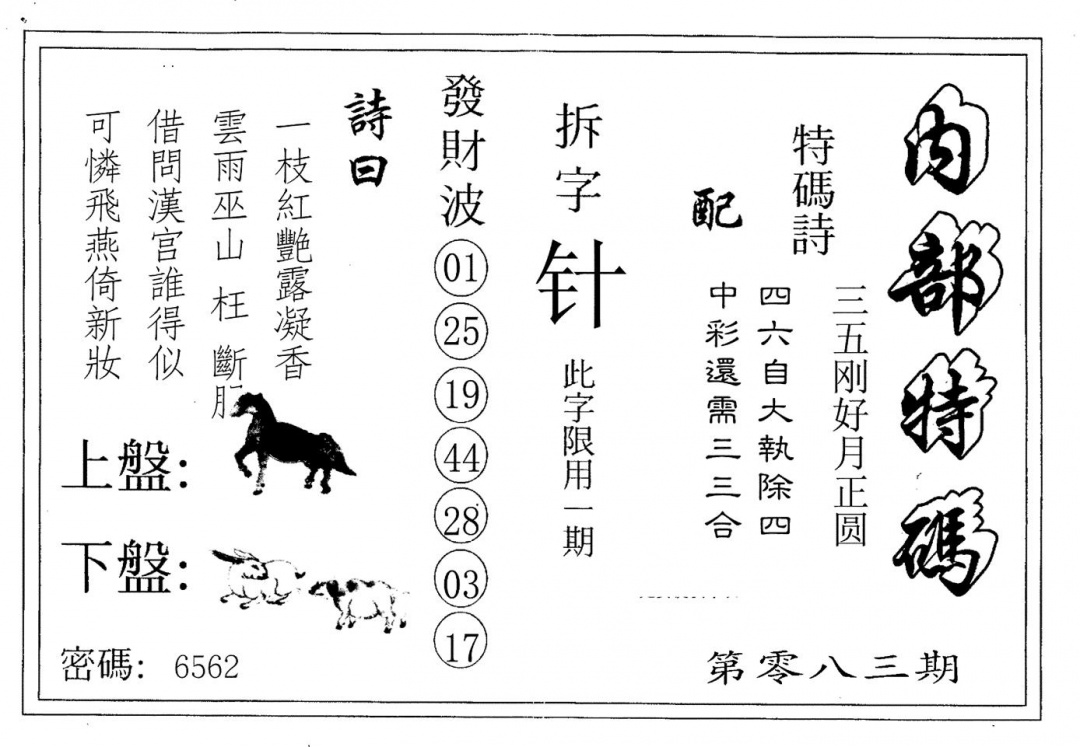 内部特碼
特碼詩
三五刚好月正圆
配
四六自大執除四
中彩還需三三合
第零八三期
拆字
针
此字限用一期
發財波
01
25
19
44
28
03
17
詩曰
一枝紅艷露凝香
雲雨巫山 枉 斷
借問漢宮誰得似
可憐飛燕倚新妝
上盤:
下盤:
密碼: 6562